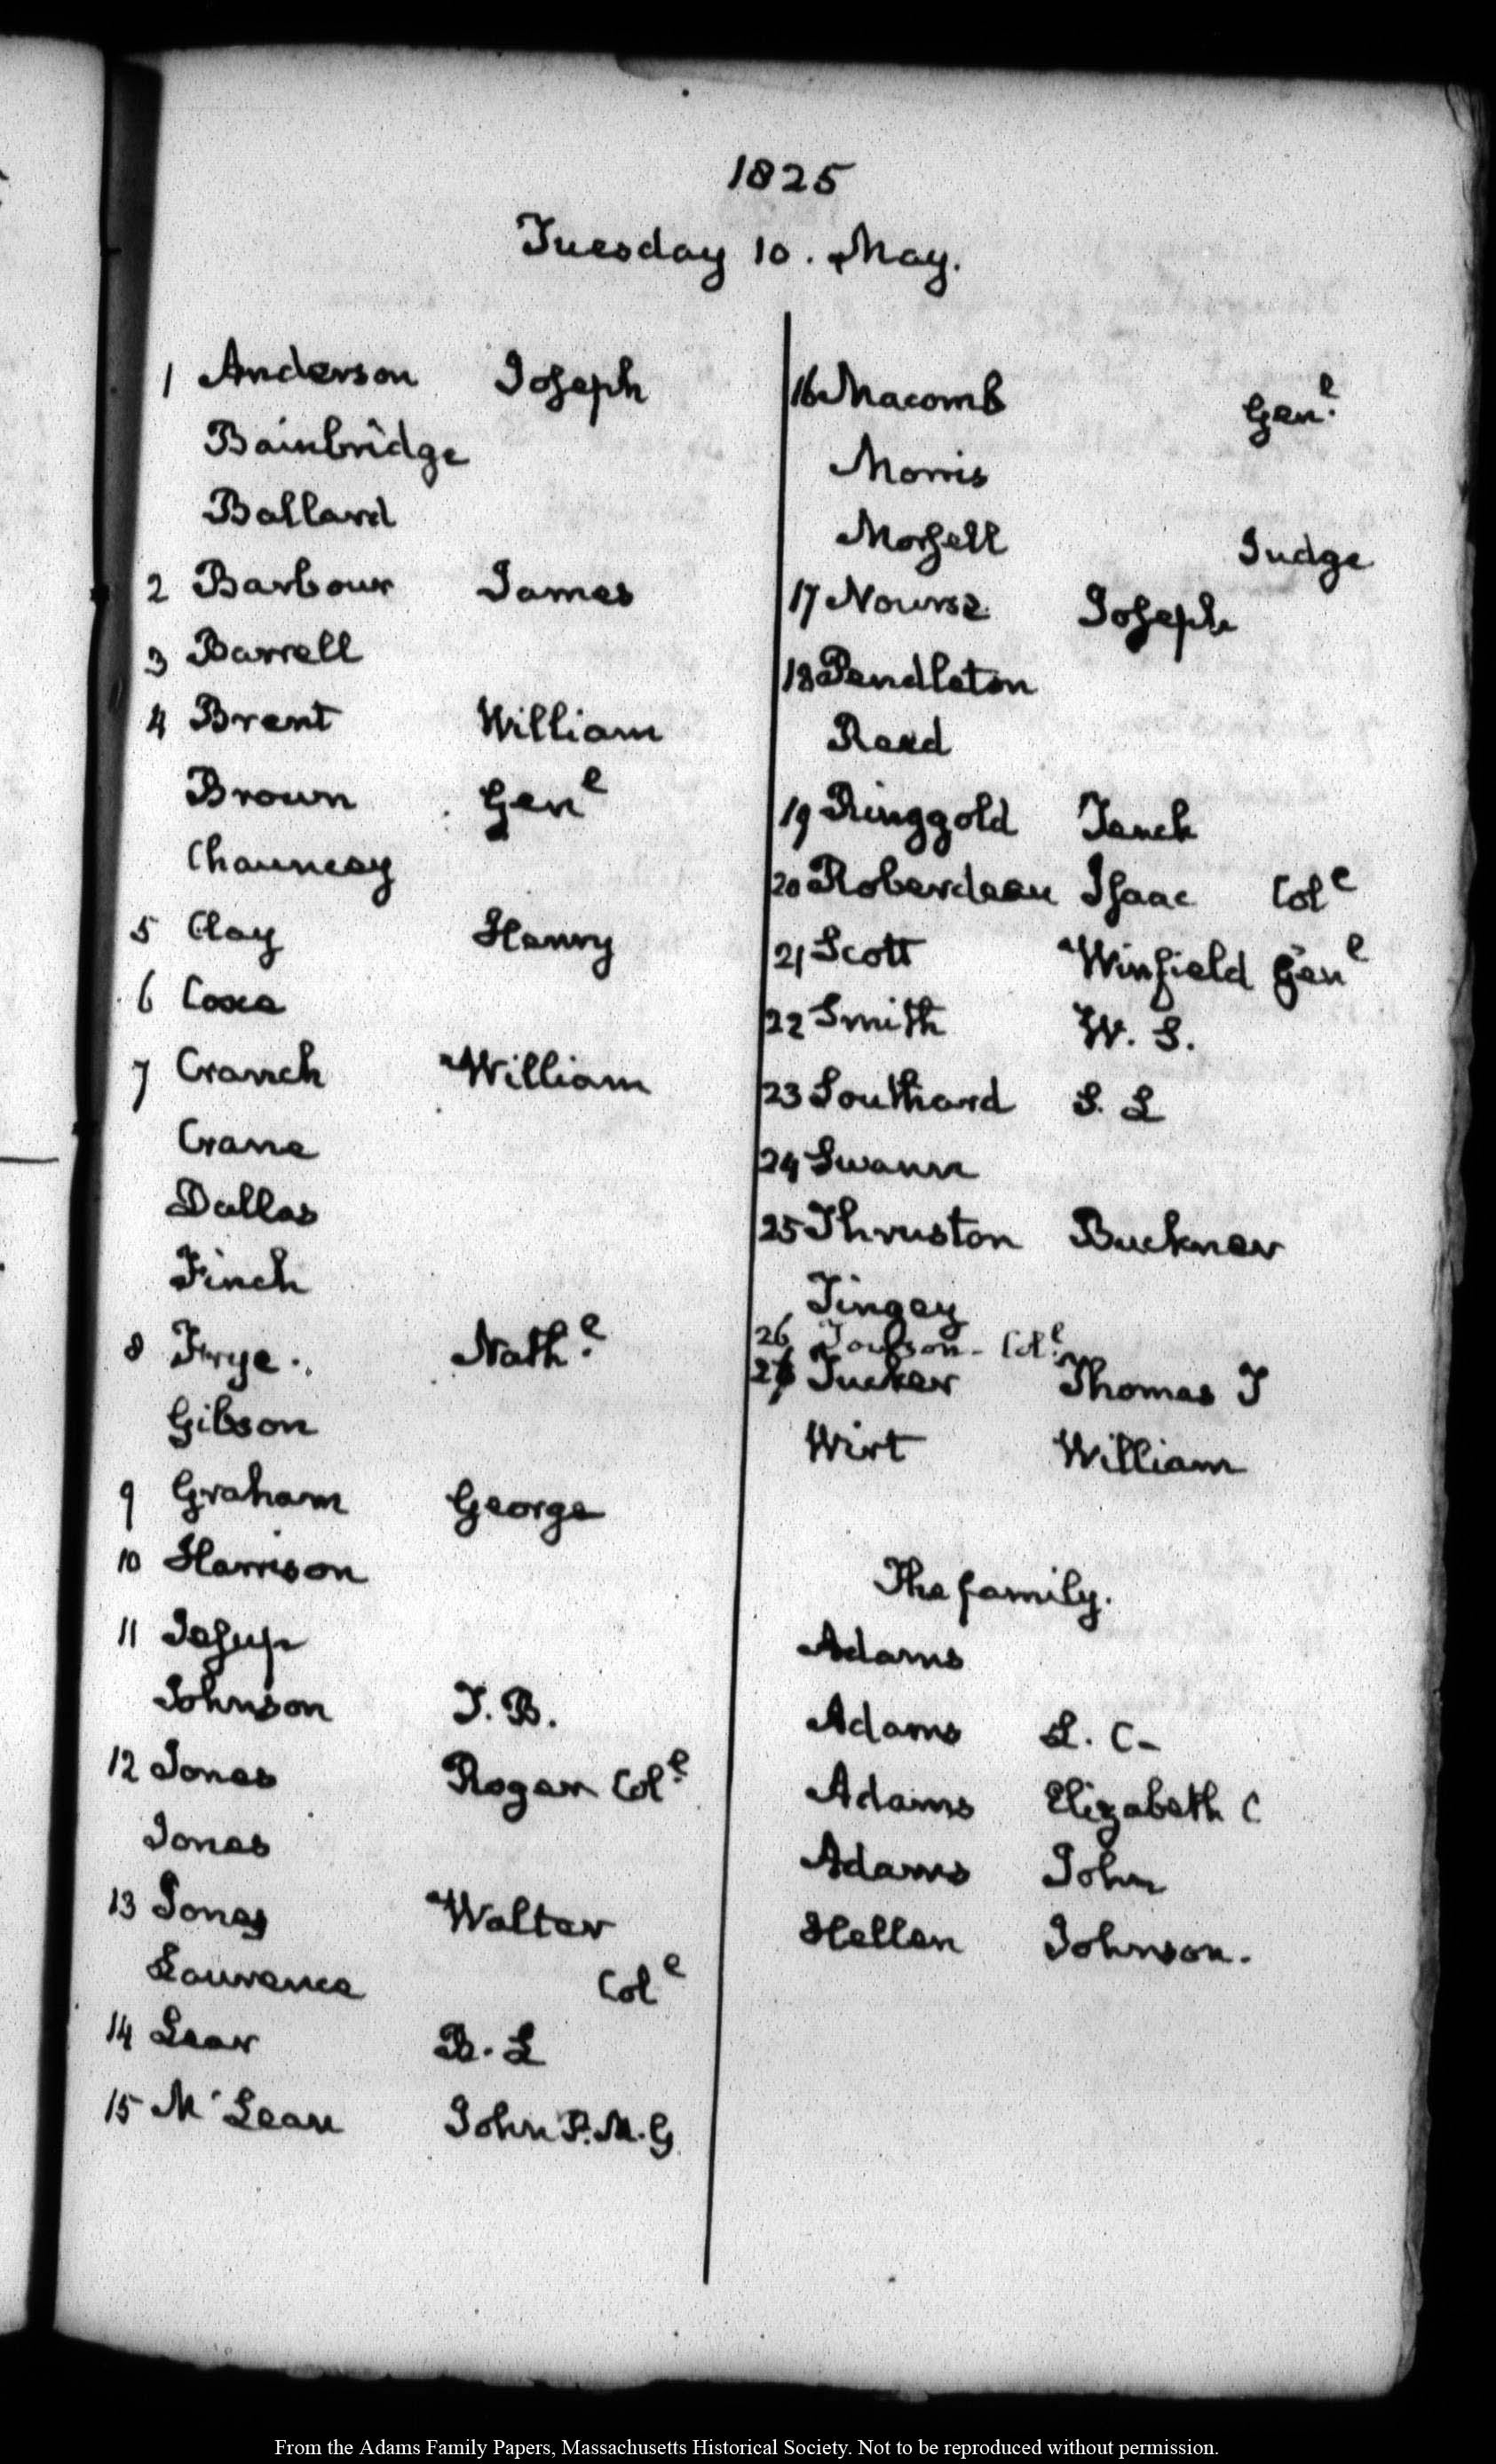 1825
Tuesday 10. May.
1 Anderson Joseph
Bainbridge
Ballard
2 Barbour James
3 Barrell
4 Brent William
Brown Genl
Chauncey
5 Clay Henry
6 Coxe
7 Cranch William
Crane
Dallas
Finch
8 Frye. Nathl.
Gibson
9 Graham George
10 Harrison
11 Jesup
Johnson T. B.
12 Jones Roger Coll.
Jones
13 Jones Walter
Laurence Coll
14 Lear B. L
15 McLean John P. M. G
16 Macomb Genl.
Morris
Morsell Judge
17 Nourse Joseph
18 Pendleton
Read
19 Ringgold Tench
20 Roberdeau Isaac Coll
21 Scott Winfield Genl
22 Smith W. S.
23 Southard S. L
24 Swann
25 Thruston Buckner
Tingey
26 Towson- Coll.
27 Tucker Thomas T
Wirt William
The family.
Adams
Adams L. C-
Adams Elizabeth C
Adams John
Hellen Johnson.
From the Adams Family Papers, Massachusetts Historical Society. Not to be reproduced without permission.